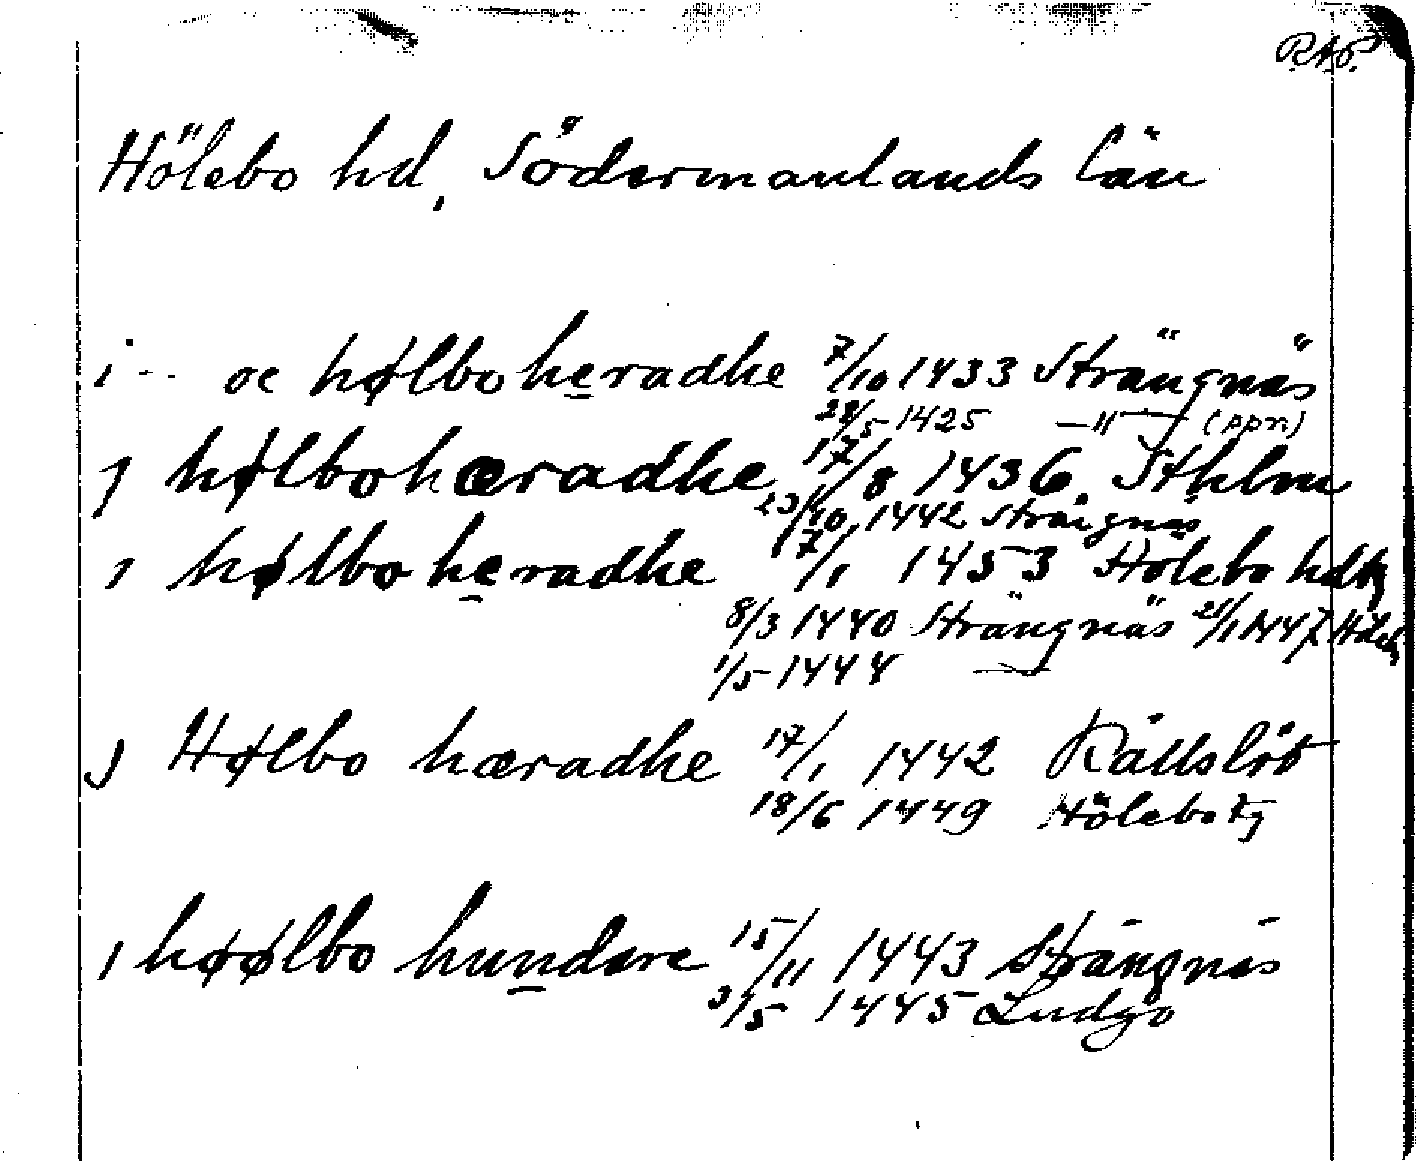 RAP.
Hölebo hd, Södermanlands län
i -- oc hølboheradhe 7/10 1433 Strängnäs
28/5 1425 —"— (ppn)
j hølbohæradhe 17/8 1436 Sthlm
23/10 1442 Strängnäs
i hølboheradhe 17/1 1453 Hölebo hdtg
8/3 1440 Strängnäs 21/1 1447 Höleb
1/5 1444 —
j Hølbo hæradhe 17/1 1442 Råtslöt
18/6 1449 Hölebo tg
i høølbo hundare 15/11 1443 Strängnäs
3/5 1445 Ludgo